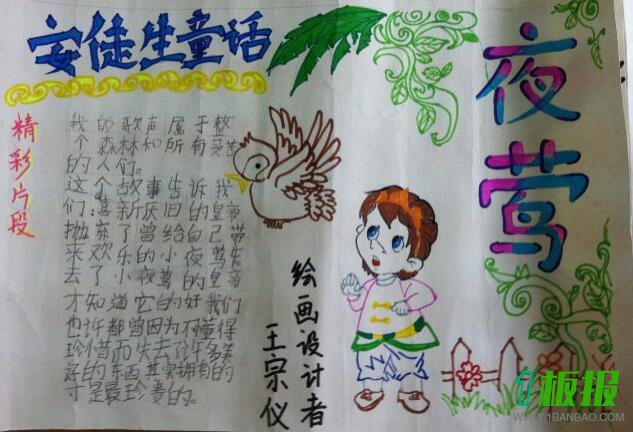 安徒生童话
夜莺
精彩片段
我的歌声属于整
个森林和所有受苦
的人们。
这个故事告诉我
们:喜新厌旧的皇帝
抛弃了曾给自己带
来欢乐的小夜莺失
去了小夜莺的皇帝
才知道它的好我们
也许都曾因为不懂得
珍惜而失去了许多美
好的东西其实拥有的
才是最珍贵的。
绘画设计者
王宗仪
1板报
WWW.1BANBAO.COM